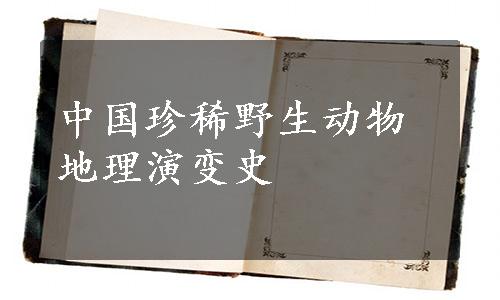 中国珍稀野生动物
地理演变史